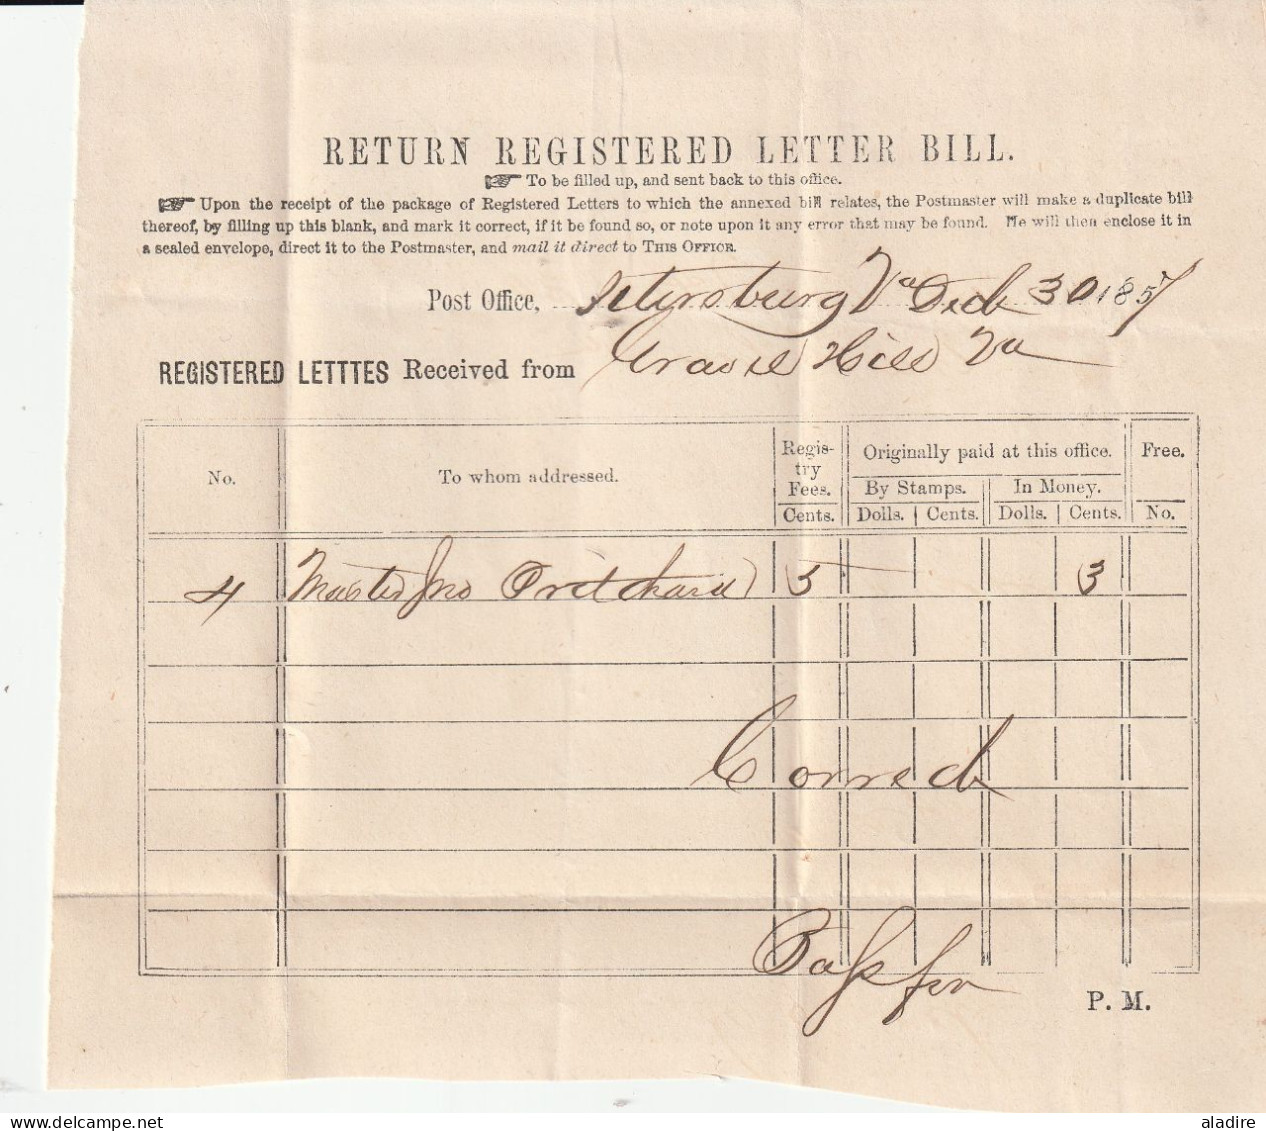 RETURN REGISTERED LETTER BILL.
☞ To be filled up, and sent back to this office.
☞ Upon the receipt of the package of Registered Letters to which the annexed bill relates, the Postmaster will make a duplicate bill
thereof, by filling up this blank, and mark it correct, if it be found so, or note upon it any error that may be found. He will then enclose it in
a sealed envelope, direct it to the Postmaster, and mail it direct to THIS OFFICE.
Post Office, Petersburg Va Dec 30 1857
REGISTERED LETTTES Received from Gravel Hill Va
No.
To whom addressed.
Regis-
try
Fees.
Cents.
Originally paid at this office.
By Stamps.
In Money.
Dolls.
Cents.
Dolls.
Cents.
Free.
No.
4 Master Jno Pritchard 5 3
Correct
P. M.
aladire